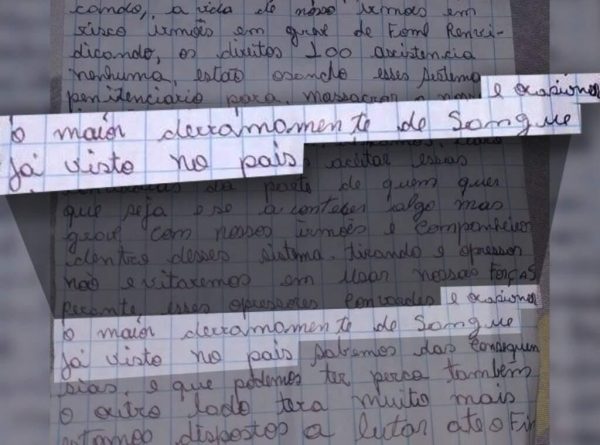 cando, a vida de nosso irmões em
risco irmões em greve de Fome Renvi-
dicando, os direitos 100 assistencia
nenhuma, estão osando esses sistema
penitenciario para, massacrar o
e ocasionar
o maiór derramamente de Sangue
já visto no pais
aceitar essas
da parte de quem quer
que seja e se acontecer algo mas
grave com nossos irmões e Companheiros
dentro desses sistema. tirando e opressor
não evitaremos em Usar nossas FORÇAS
esses opressores Convardes e ocasionar
o maiór derramamente de Sangue
já visto no pais Sabemos das Consequen
sias, e que podemos ter perca também
o outro lado tera muito mais
estamos dispostos a lutar ate o Fim